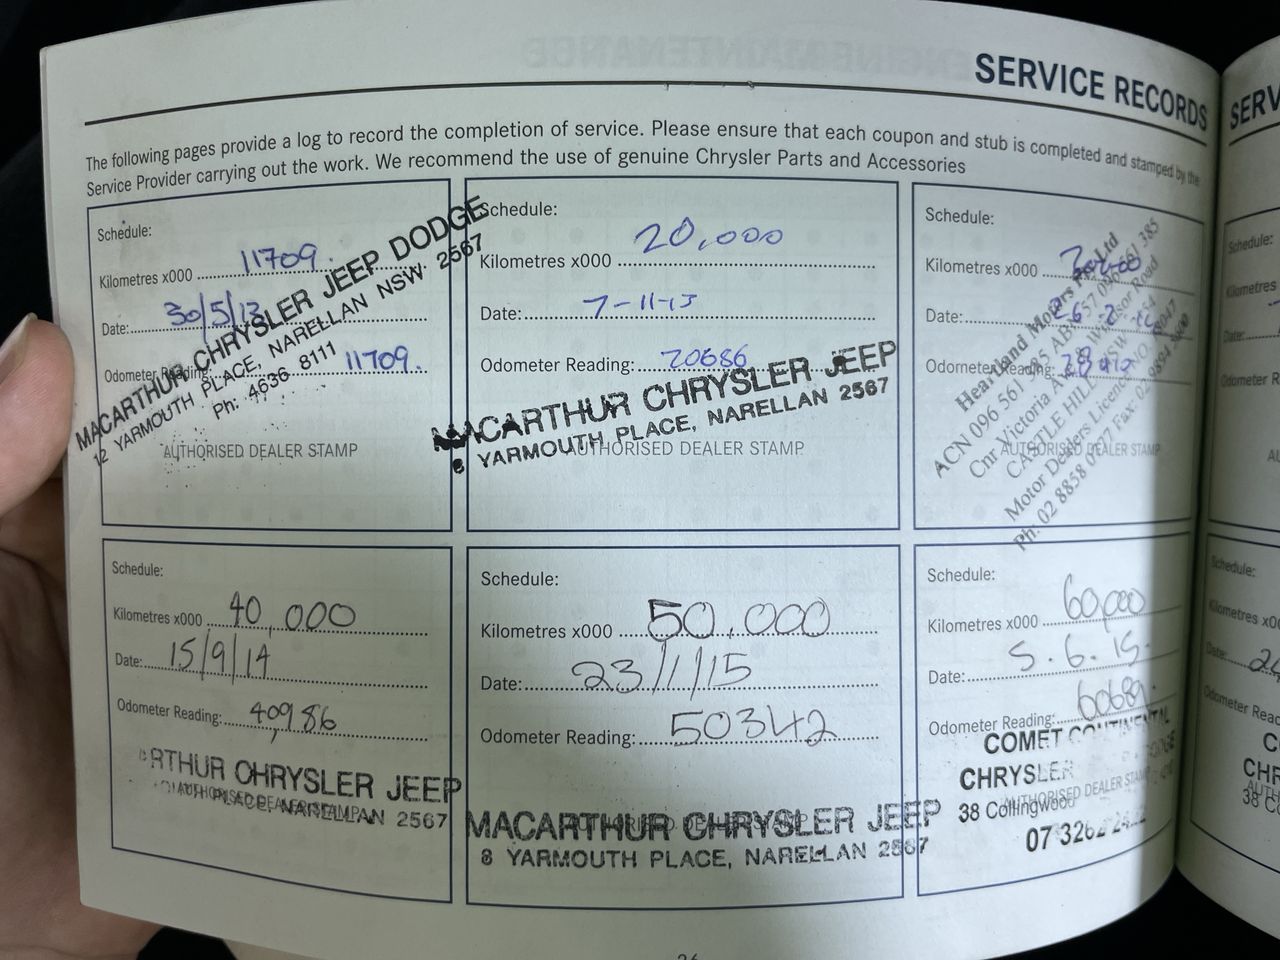 SERVICE RECORDS
The following pages provide a log to record the completion of service. Please ensure that each coupon and stub is completed and stamped by the
Service Provider carrying out the work. We recommend the use of genuine Chrysler Parts and Accessories
Schedule:
Kilometres x000 11709.
Date: 30/5/13
Odometer Reading: 11709.
MACARTHUR CHRYSLER JEEP DODGE
12 YARMOUTH PLACE, NARELLAN NSW 2567
Ph: 4636 8111
AUTHORISED DEALER STAMP
Schedule:
Kilometres x000 20,000
Date: 7-11-13
Odometer Reading: 20686
MACARTHUR CHRYSLER JEEP
8 YARMOUTH PLACE, NARELLAN 2567
AUTHORISED DEALER STAMP
Schedule:
Kilometres x000
Date: 26-2-14
Odometer Reading:
Heartland Motors Pty Ltd
ACN 096 561 385 ABN 57 096 561 385
Cnr Victoria Ave & Windsor Road
CASTLE HILL NSW 2154
Motor Dealers Licence NO.
Ph: 02 8858 Fax: 02 9894
AUTHORISED DEALER STAMP
Schedule:
Kilometres x000 40,000
Date: 15/9/14
Odometer Reading: 40986
ARTHUR CHRYSLER JEEP
PLACE, NARELLAN 2567
AUTHORISED DEALER STAMP
Schedule:
Kilometres x000 50,000
Date: 23/1/15
Odometer Reading: 50342
MACARTHUR CHRYSLER JEEP
8 YARMOUTH PLACE, NARELLAN 2567
Schedule:
Kilometres x000 60,000
Date: 5.6.15.
Odometer Reading: 60689.
COMET CONTINENTAL
CHRYSLER DODGE
AUTHORISED DEALER STAMP
38 Collingwood
07 3262
26
SERV
Schedule:
Kilometres
Date:
Odometer R
AU
Schedule:
Kilometres x00
Date:
Odometer Read
CHR
AUTH
38 Co